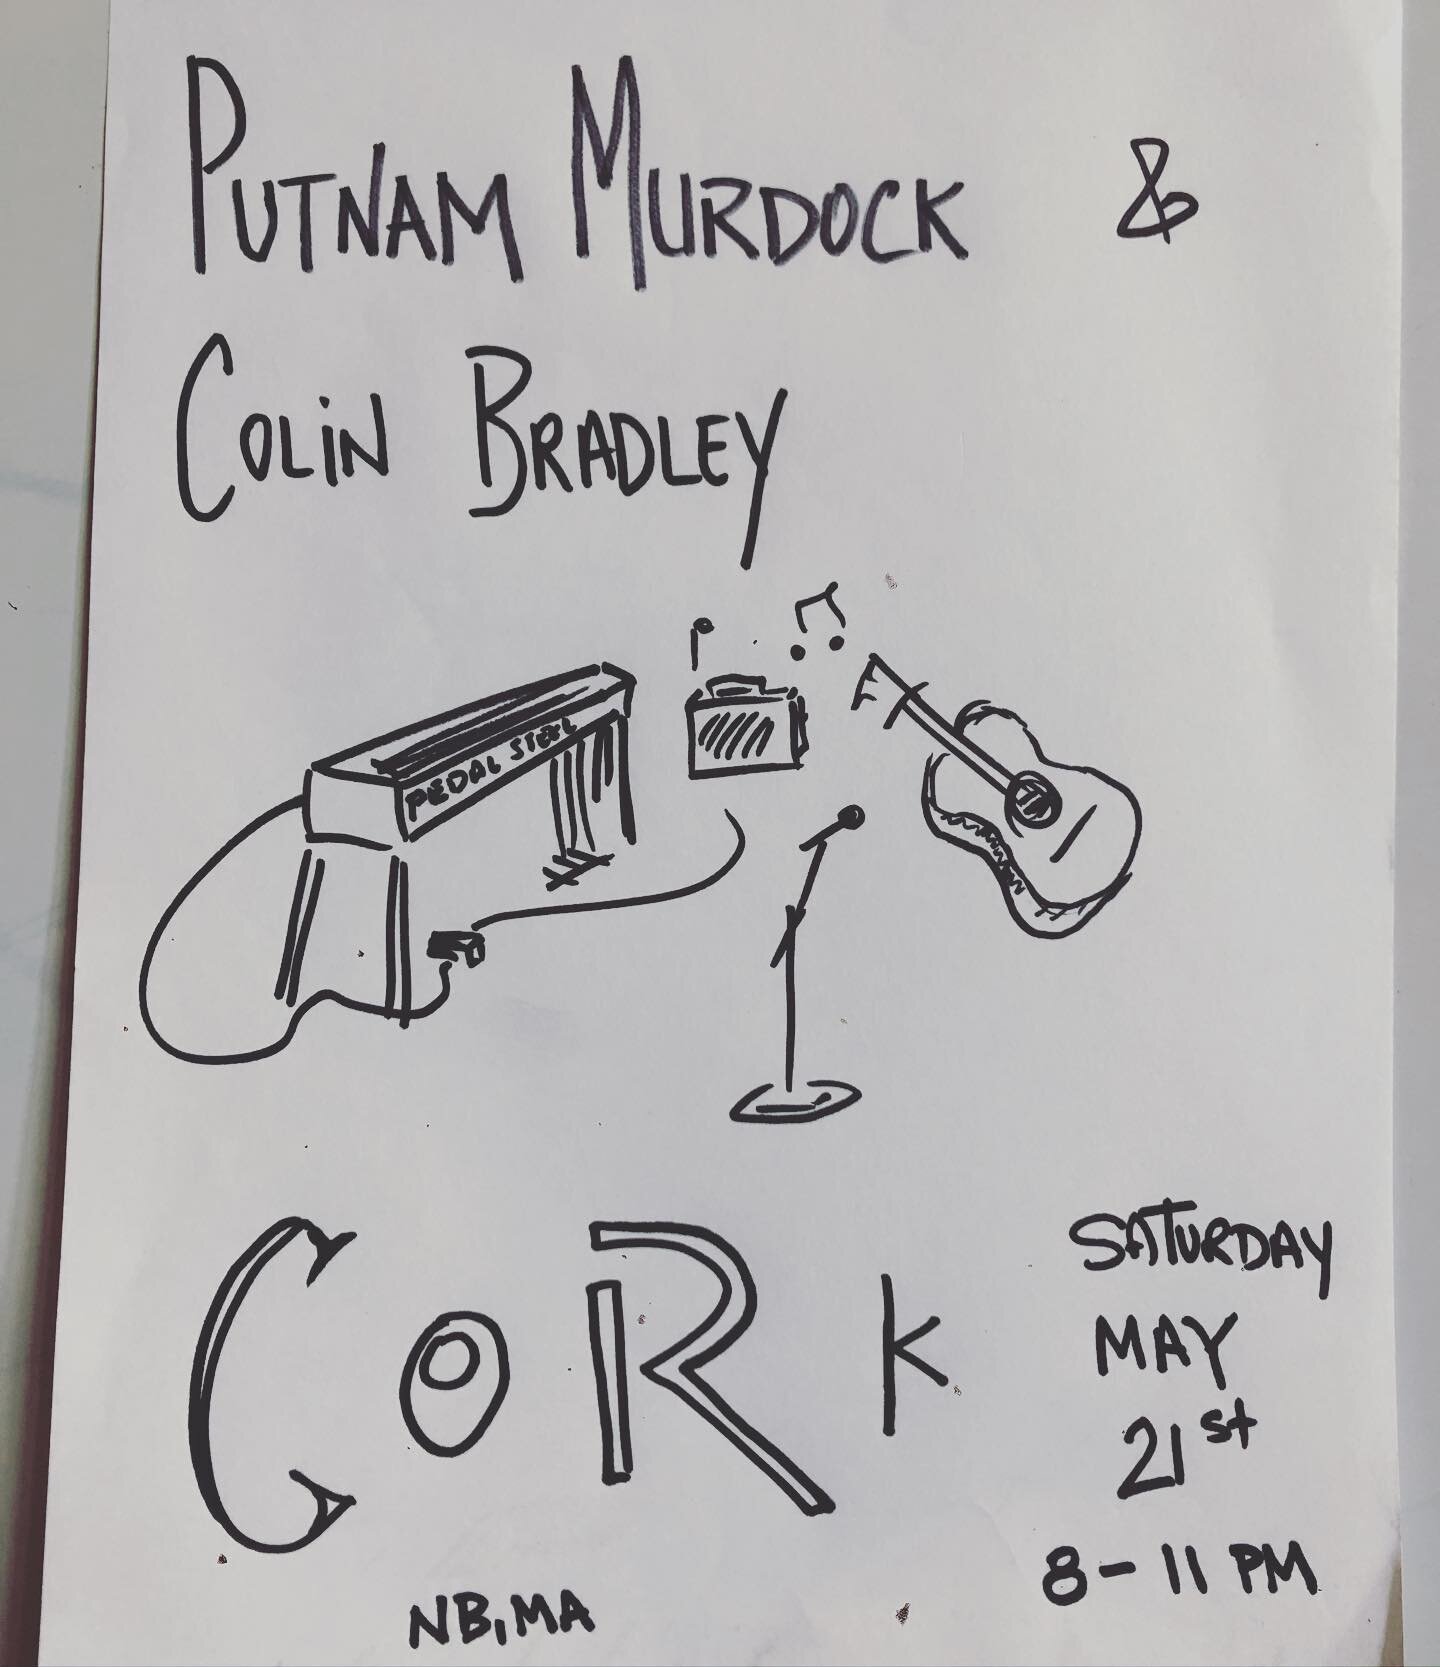 PUTNAM MURDOCK &
COLiN BRADLEY
PEDAL STEEL
CoRK
SATURDAY
MAY
21st
8-11 PM
NB, MA